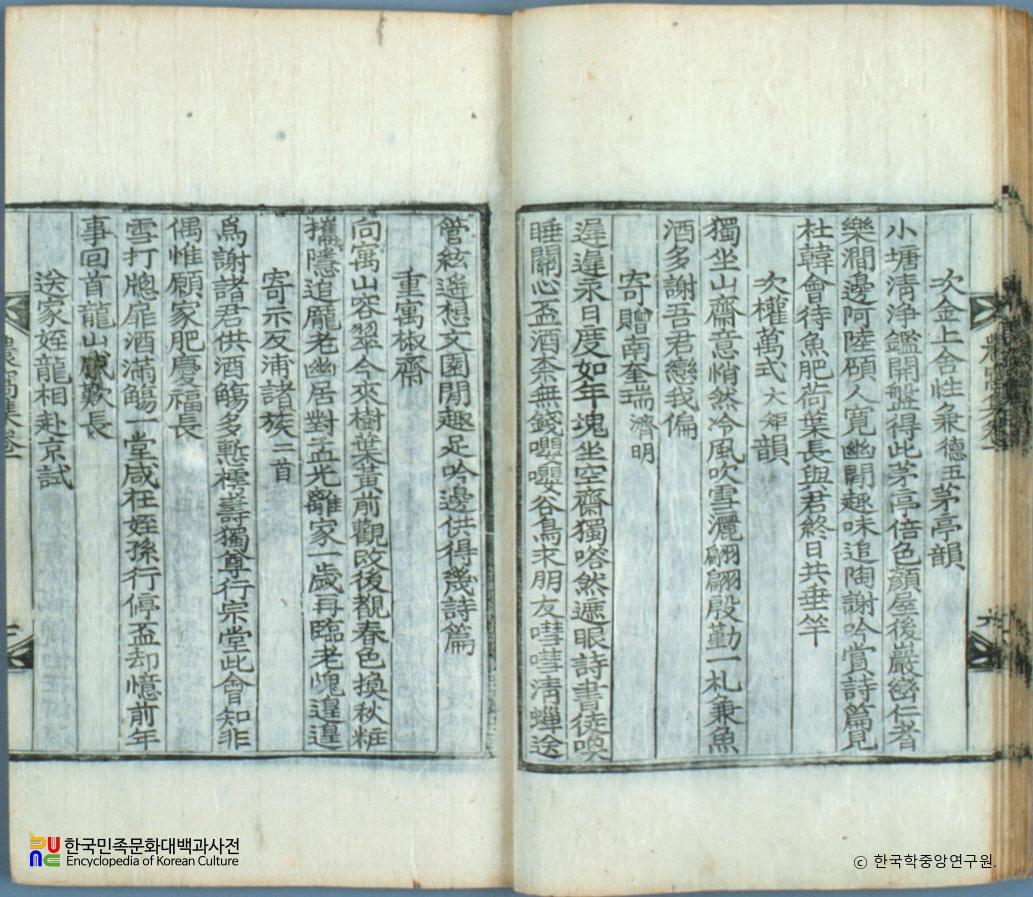 次金上舍性兼德五茅亭韻
小塘清淨鑑開盤得此茅亭倍色顔屋後巖巒仁者
樂澗邊阿陸碩人寬幽閒趣味追陶謝吟賞詩篇見
杜韓會待魚肥荷葉長與君終日共垂竿
次權萬式大矩韻
獨坐山齋意悄然冷風吹雪灑翩翩殷勤一札兼魚
酒多謝吾君戀我偏
寄贈南奎瑞濟明
遲遲永日度如年塊坐空齋獨嗒然遮眼詩書徒喚
睡關心盃酒柰無錢嚶嚶谷鳥求朋友嘒嘒清蟬送
管絃遙想文園閒趣足吟邊供得幾詩篇
重寓椒齋
向寓山容翠今來樹葉黃前觀改後觀春色換秋粧
攜隱追龐老幽居對孟光離家一歲再臨老愧遑遑
寄示反浦諸族二首
爲謝諸君供酒觴多慙樗壽獨尊行宗堂此會知非
偶惟願家肥慶福長
雪打牕扉酒滿觴一堂咸在姪孫行停盃却憶前年
事回首龍山感歎長
送家姪龍相赴京試
한국민족문화대백과사전
Encyclopedia of Korean Culture
© 한국학중앙연구원.